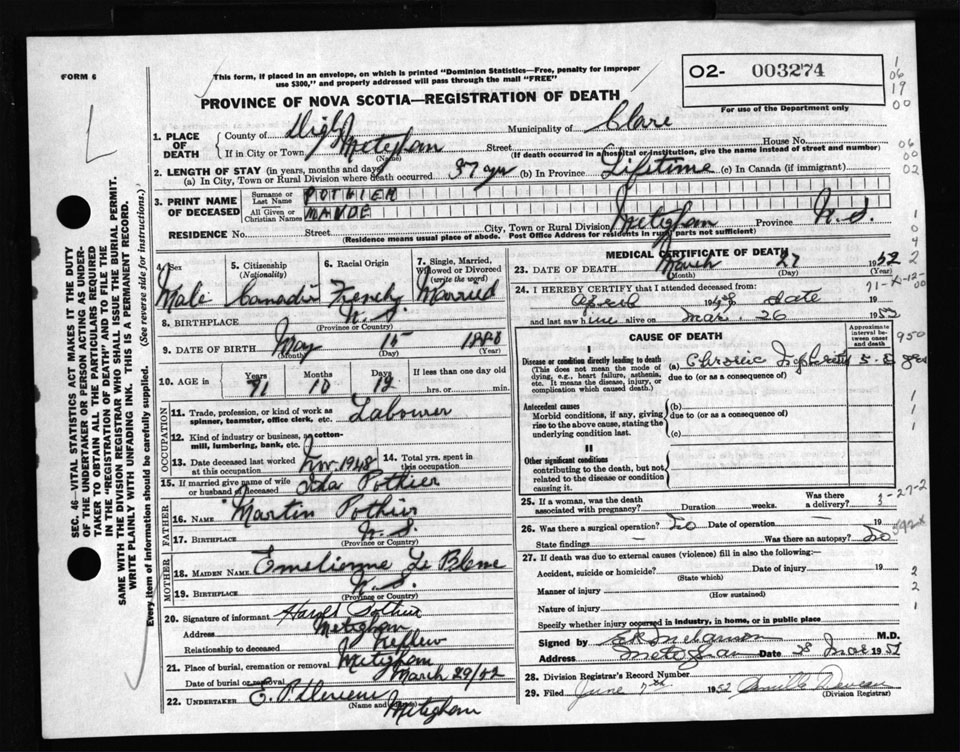 FORM 6
This form, if placed in an envelope, on which is printed "Dominion Statistics—Free, penalty for improper
use $300," and properly addressed will pass through the mail "FREE"
O2- 003274
For use of the Department only
PROVINCE OF NOVA SCOTIA—REGISTRATION OF DEATH
1. PLACE OF DEATH
County of Digby Municipality of Clare
If in City or Town Meteghan (Name) Street House No.
(If death occurred in a hospital or institution, give the name instead of street and number)
2. LENGTH OF STAY (in years, months and days)
(a) In City, Town or Rural Division where death occurred 37 yrs (b) In Province Lifetime (c) In Canada (if immigrant)
3. PRINT NAME OF DECEASED
Surname or Last Name POTHIER
All Given or Christian Names MANDE
RESIDENCE No. Street City, Town or Rural Division Meteghan Province N.S.
(Residence means usual place of abode. Post Office Address for residents in rural parts not sufficient)
4. Sex Male
5. Citizenship (Nationality) Canadian
6. Racial Origin French
7. Single, Married, Widowed or Divorced (write the word) Married
8. BIRTHPLACE N.S. (Province or Country)
9. DATE OF BIRTH May (Month) 15 (Day) 1880 (Year)
10. AGE in Years 71 Months 10 Days 12 If less than one day old hrs. or min.
OCCUPATION
11. Trade, profession, or kind of work as spinner, teamster, office clerk, etc. Labourer
12. Kind of industry or business, as cotton-mill, lumbering, bank, etc.
13. Date deceased last worked at this occupation Nov. 1948 14. Total yrs. spent in this occupation
15. If married give name of wife or husband of deceased Ida Pothier
FATHER
16. NAME Martin Pothier
17. BIRTHPLACE N.S. (Province or Country)
MOTHER
18. MAIDEN NAME Emelienne Le Blanc
19. BIRTHPLACE N.S. (Province or Country)
20. Signature of informant Harold Pothier
Address Meteghan
Relationship to deceased Neffew
21. Place of burial, cremation or removal Meteghan
Date of burial or removal March 29/52
22. UNDERTAKER (Name and address) Meteghan
MEDICAL CERTIFICATE OF DEATH
23. DATE OF DEATH March (Month) 27 (Day) 1952 (Year)
24. I HEREBY CERTIFY that I attended deceased from:
April 1948 to date 19
and last saw h im alive on Mar. 26 1952
CAUSE OF DEATH
Approximate interval between onset and death
I
Disease or condition directly leading to death (a) Chronic 5-8 yrs
(This does not mean the mode of dying, e.g., heart failure, asthenia, etc. It means the disease, injury, or complication which caused death.)
due to (or as a consequence of)
Antecedent causes (b)
Morbid conditions, if any, giving rise to the above cause, stating the underlying condition last.
due to (or as a consequence of)
(c)
II
Other significant conditions
contributing to the death, but not related to the disease or condition causing it.
25. If a woman, was the death associated with pregnancy? Duration weeks. Was there a delivery?
26. Was there a surgical operation? No Date of operation — 19
State findings — Was there an autopsy? No
27. If death was due to external causes (violence) fill in also the following:—
Accident, suicide or homicide? (State which) Date of injury 19
Manner of injury (How sustained)
Nature of injury
Specify whether injury occurred in industry, in home, or in public place
Signed by M.D.
Address Meteghan Date 28 Mar 1952
28. Division Registrar's Record Number
29. Filed June 7th 1952 Camille Deveau (Division Registrar)
SEC. 46—VITAL STATISTICS ACT MAKES IT THE DUTY
OF THE UNDERTAKER OR PERSON ACTING AS UNDER-
TAKER TO OBTAIN ALL THE PARTICULARS REQUIRED
IN THE "REGISTRATION OF DEATH" AND TO FILE THE
SAME WITH THE DIVISION REGISTRAR WHO SHALL ISSUE THE BURIAL PERMIT.
WRITE PLAINLY WITH UNFADING INK. THIS IS A PERMANENT RECORD.
Every item of information should be carefully supplied. (See reverse side for instructions.)